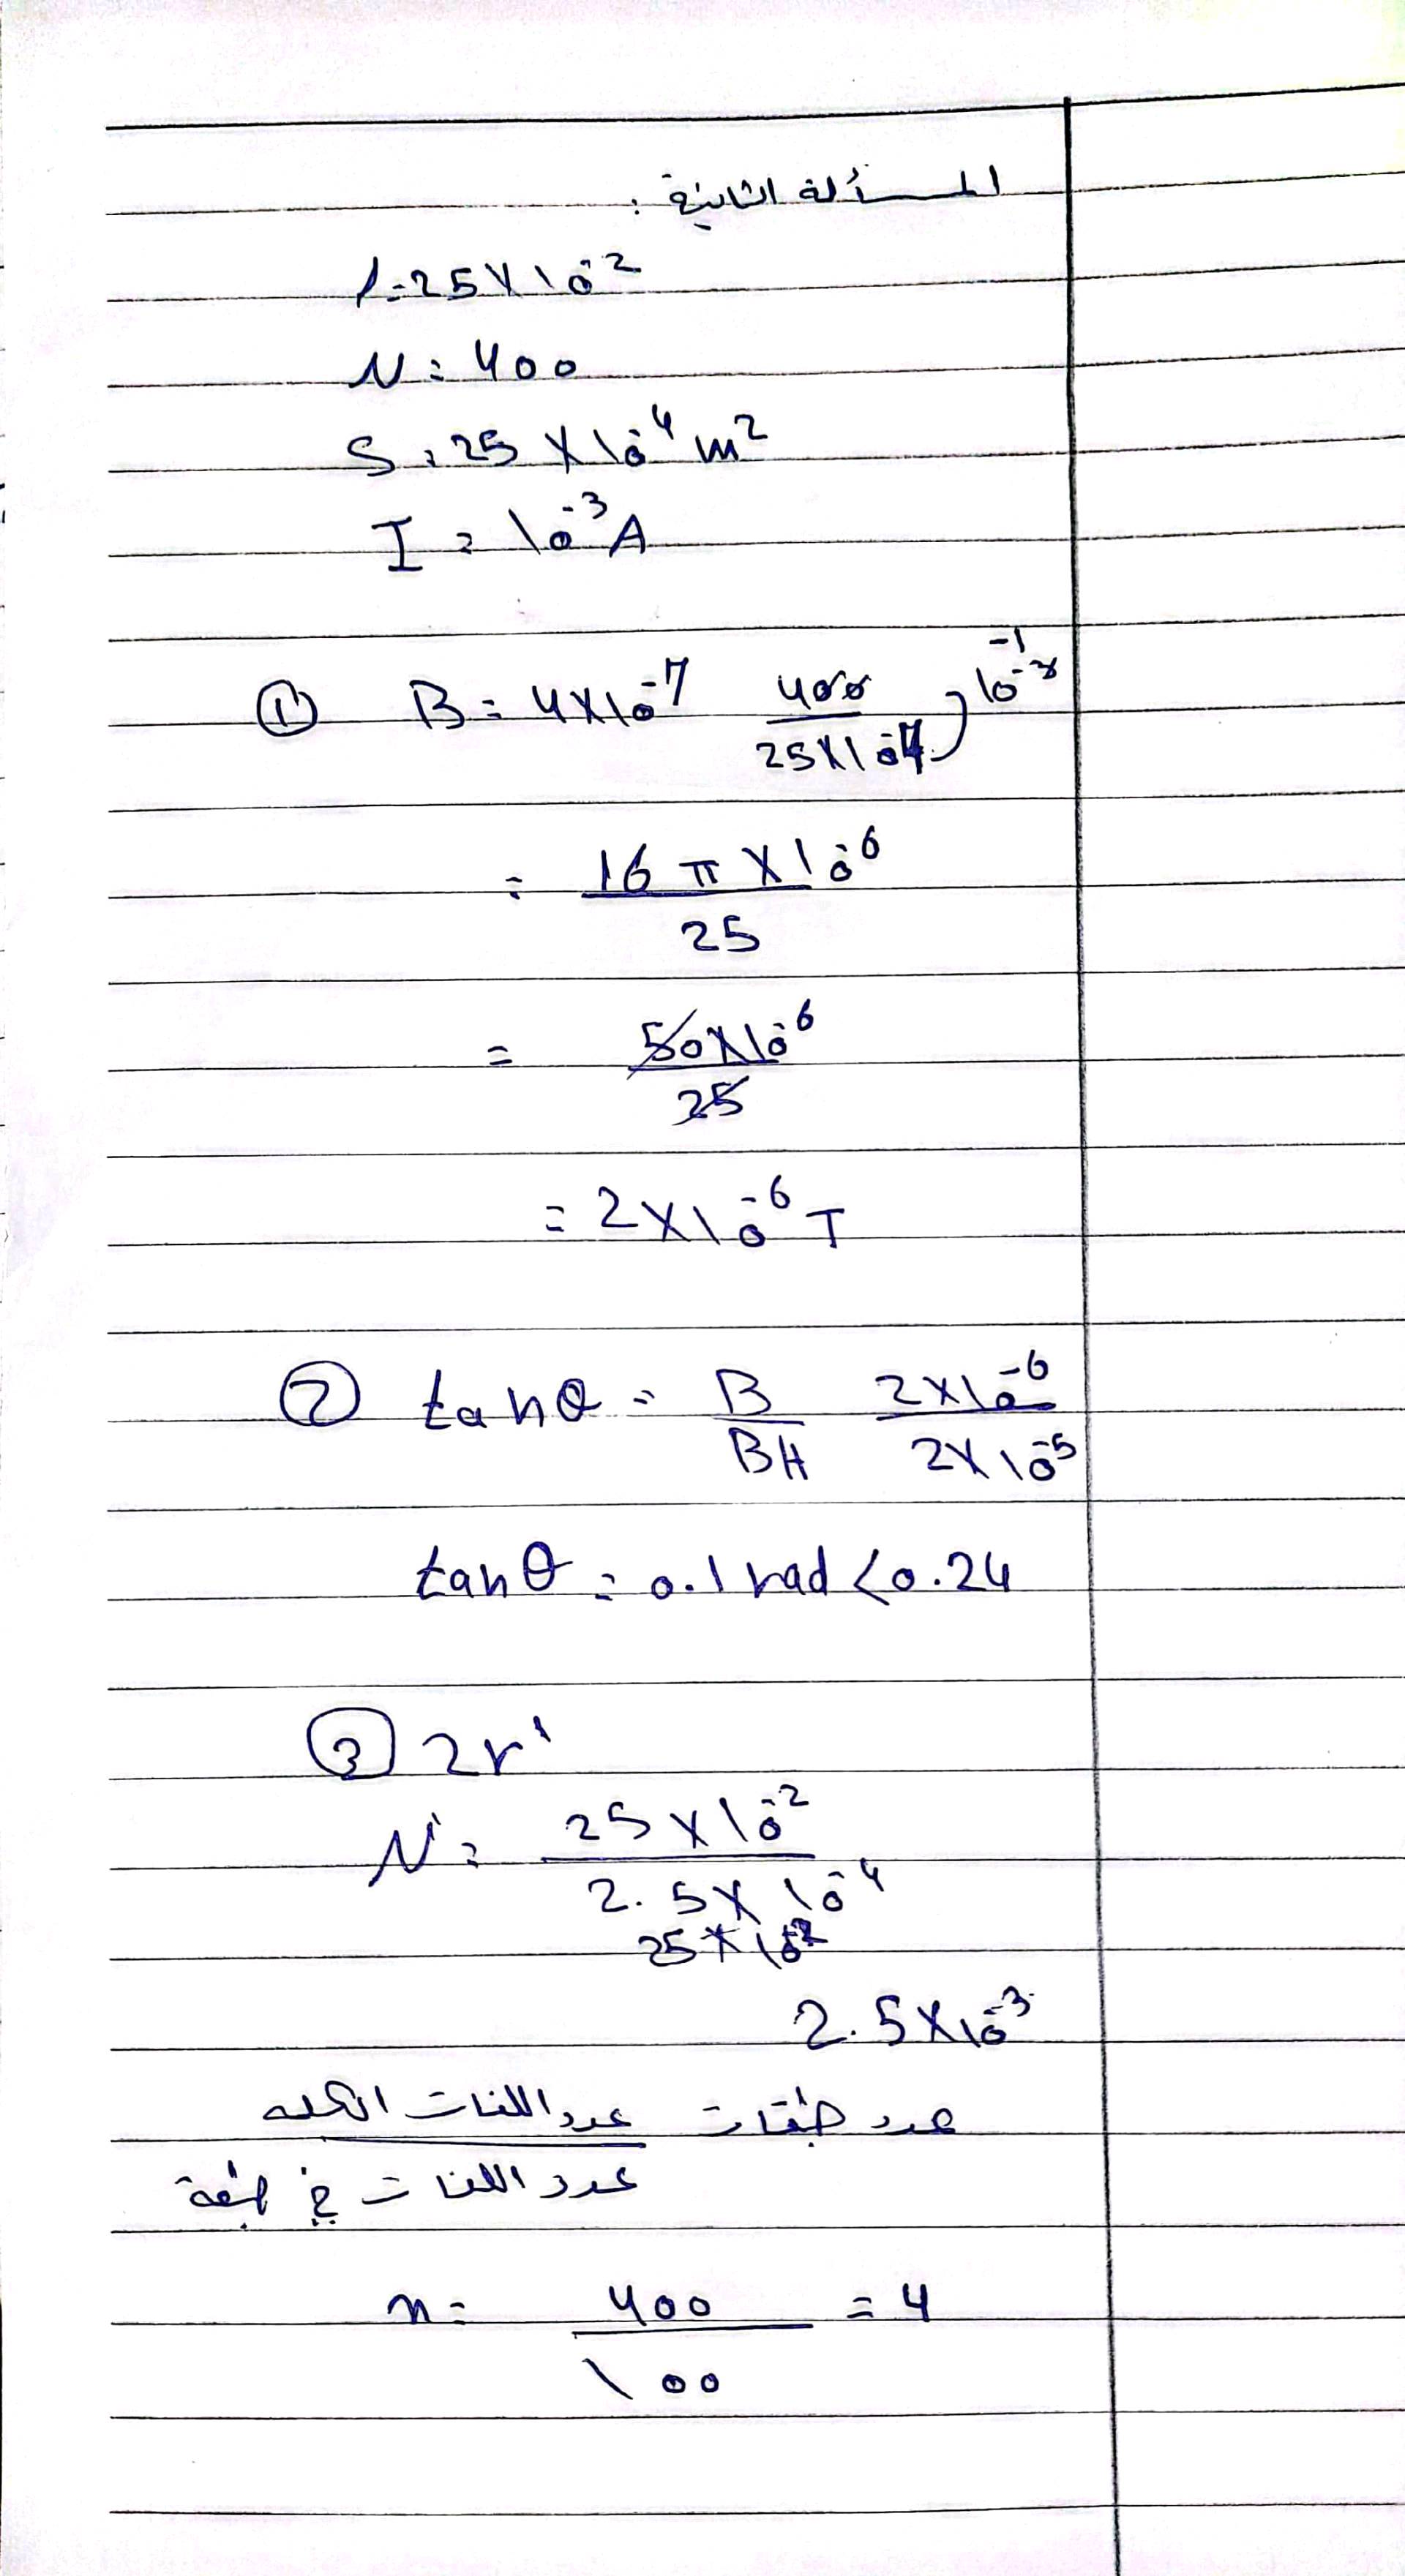 المسألة الثانية :
l = 25 × 10⁻²
N = 400
S = 25 × 10⁻⁴ m²
I = 10⁻³ A
① B = 4×10⁻⁷ 400 / 25×10 10⁻¹
= 16 π × 10⁻⁶ / 25
= 50×10⁻⁶ / 25
= 2×10⁻⁶ T
② tanθ = B / BH 2×10⁻⁶ / 2×10⁻⁵
tanθ = 0.1 rad < 0.24
③ 2r'
N' = 25 × 10⁻² / 2.5 × 10⁻⁴
25 × 10⁻²
2.5×10⁻³
عدد طبقات عدد اللفات الكلية
عدد اللفات في طبقة
n = 400 / 100 = 4